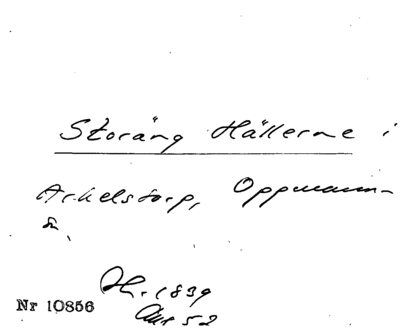 Storäng Hällerne i
Arkelstorp, Oppmann-
a.
Nr 10856
1839
52